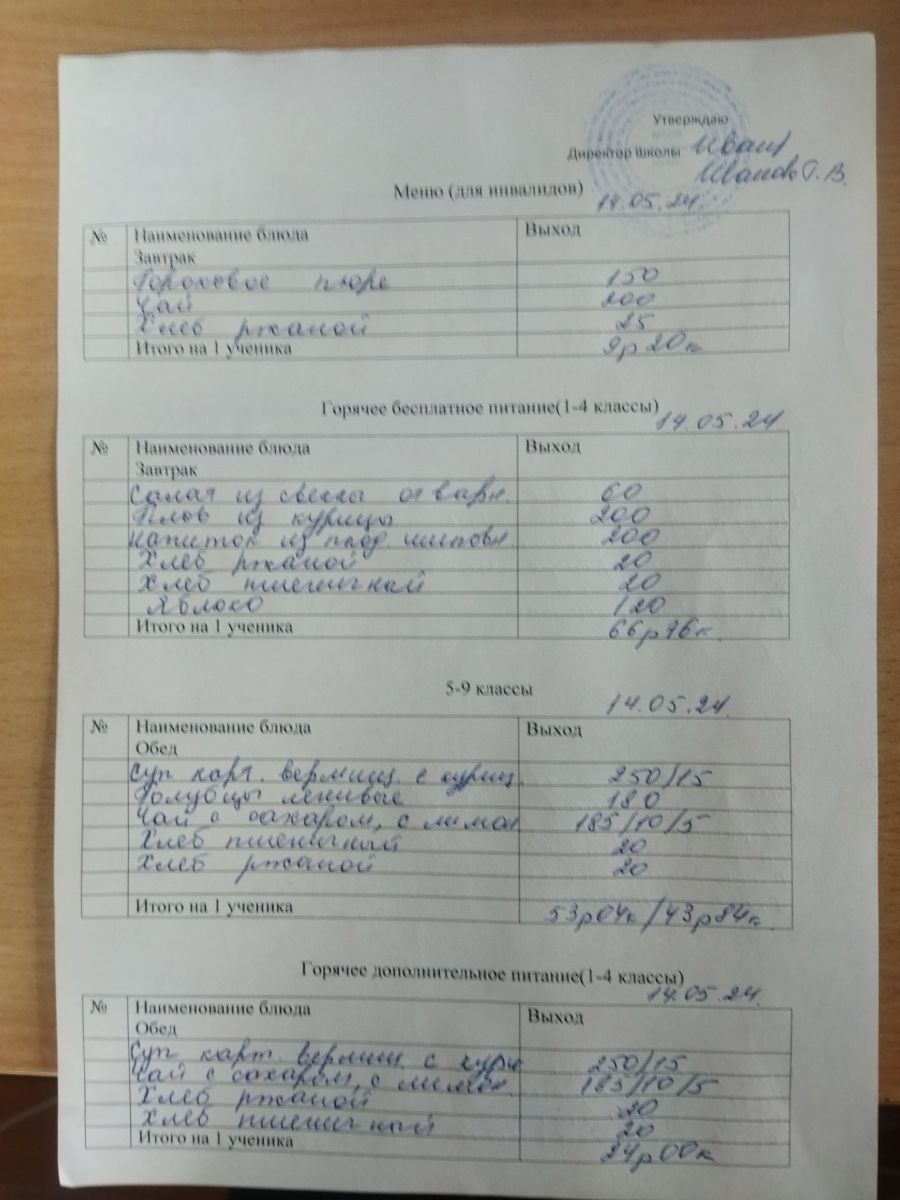 Утверждаю
Директор школы Иванов Г.В.
Меню (для инвалидов) 14.05.24.
№ Наименование блюда Выход
Завтрак
Гороховое пюре 150
Чай 200
Хлеб ржаной 25
Итого на 1 ученика 9р20к
Горячее бесплатное питание(1-4 классы) 14.05.24
№ Наименование блюда Выход
Завтрак
Салат из свеклы отварн. 60
Плов из курицы 200
Напиток из плод. шиповн. 200
Хлеб ржаной 20
Хлеб пшеничный 20
Яблоко 120
Итого на 1 ученика 66р76к.
5-9 классы 14.05.24.
№ Наименование блюда Выход
Обед
Суп карт. вермиш. с куриц. 250/15
Голубцы ленивые 180
Чай с сахаром, с лимон 185/10/5
Хлеб пшеничный 20
Хлеб ржаной 20
Итого на 1 ученика 53р04к/43р84к.
Горячее дополнительное питание(1-4 классы) 14.05.24.
№ Наименование блюда Выход
Обед
Суп карт. вермиш. с кури 250/15
Чай с сахаром, с лимон. 185/10/5
Хлеб ржаной 20
Хлеб пшеничный 20
Итого на 1 ученика 24р00к